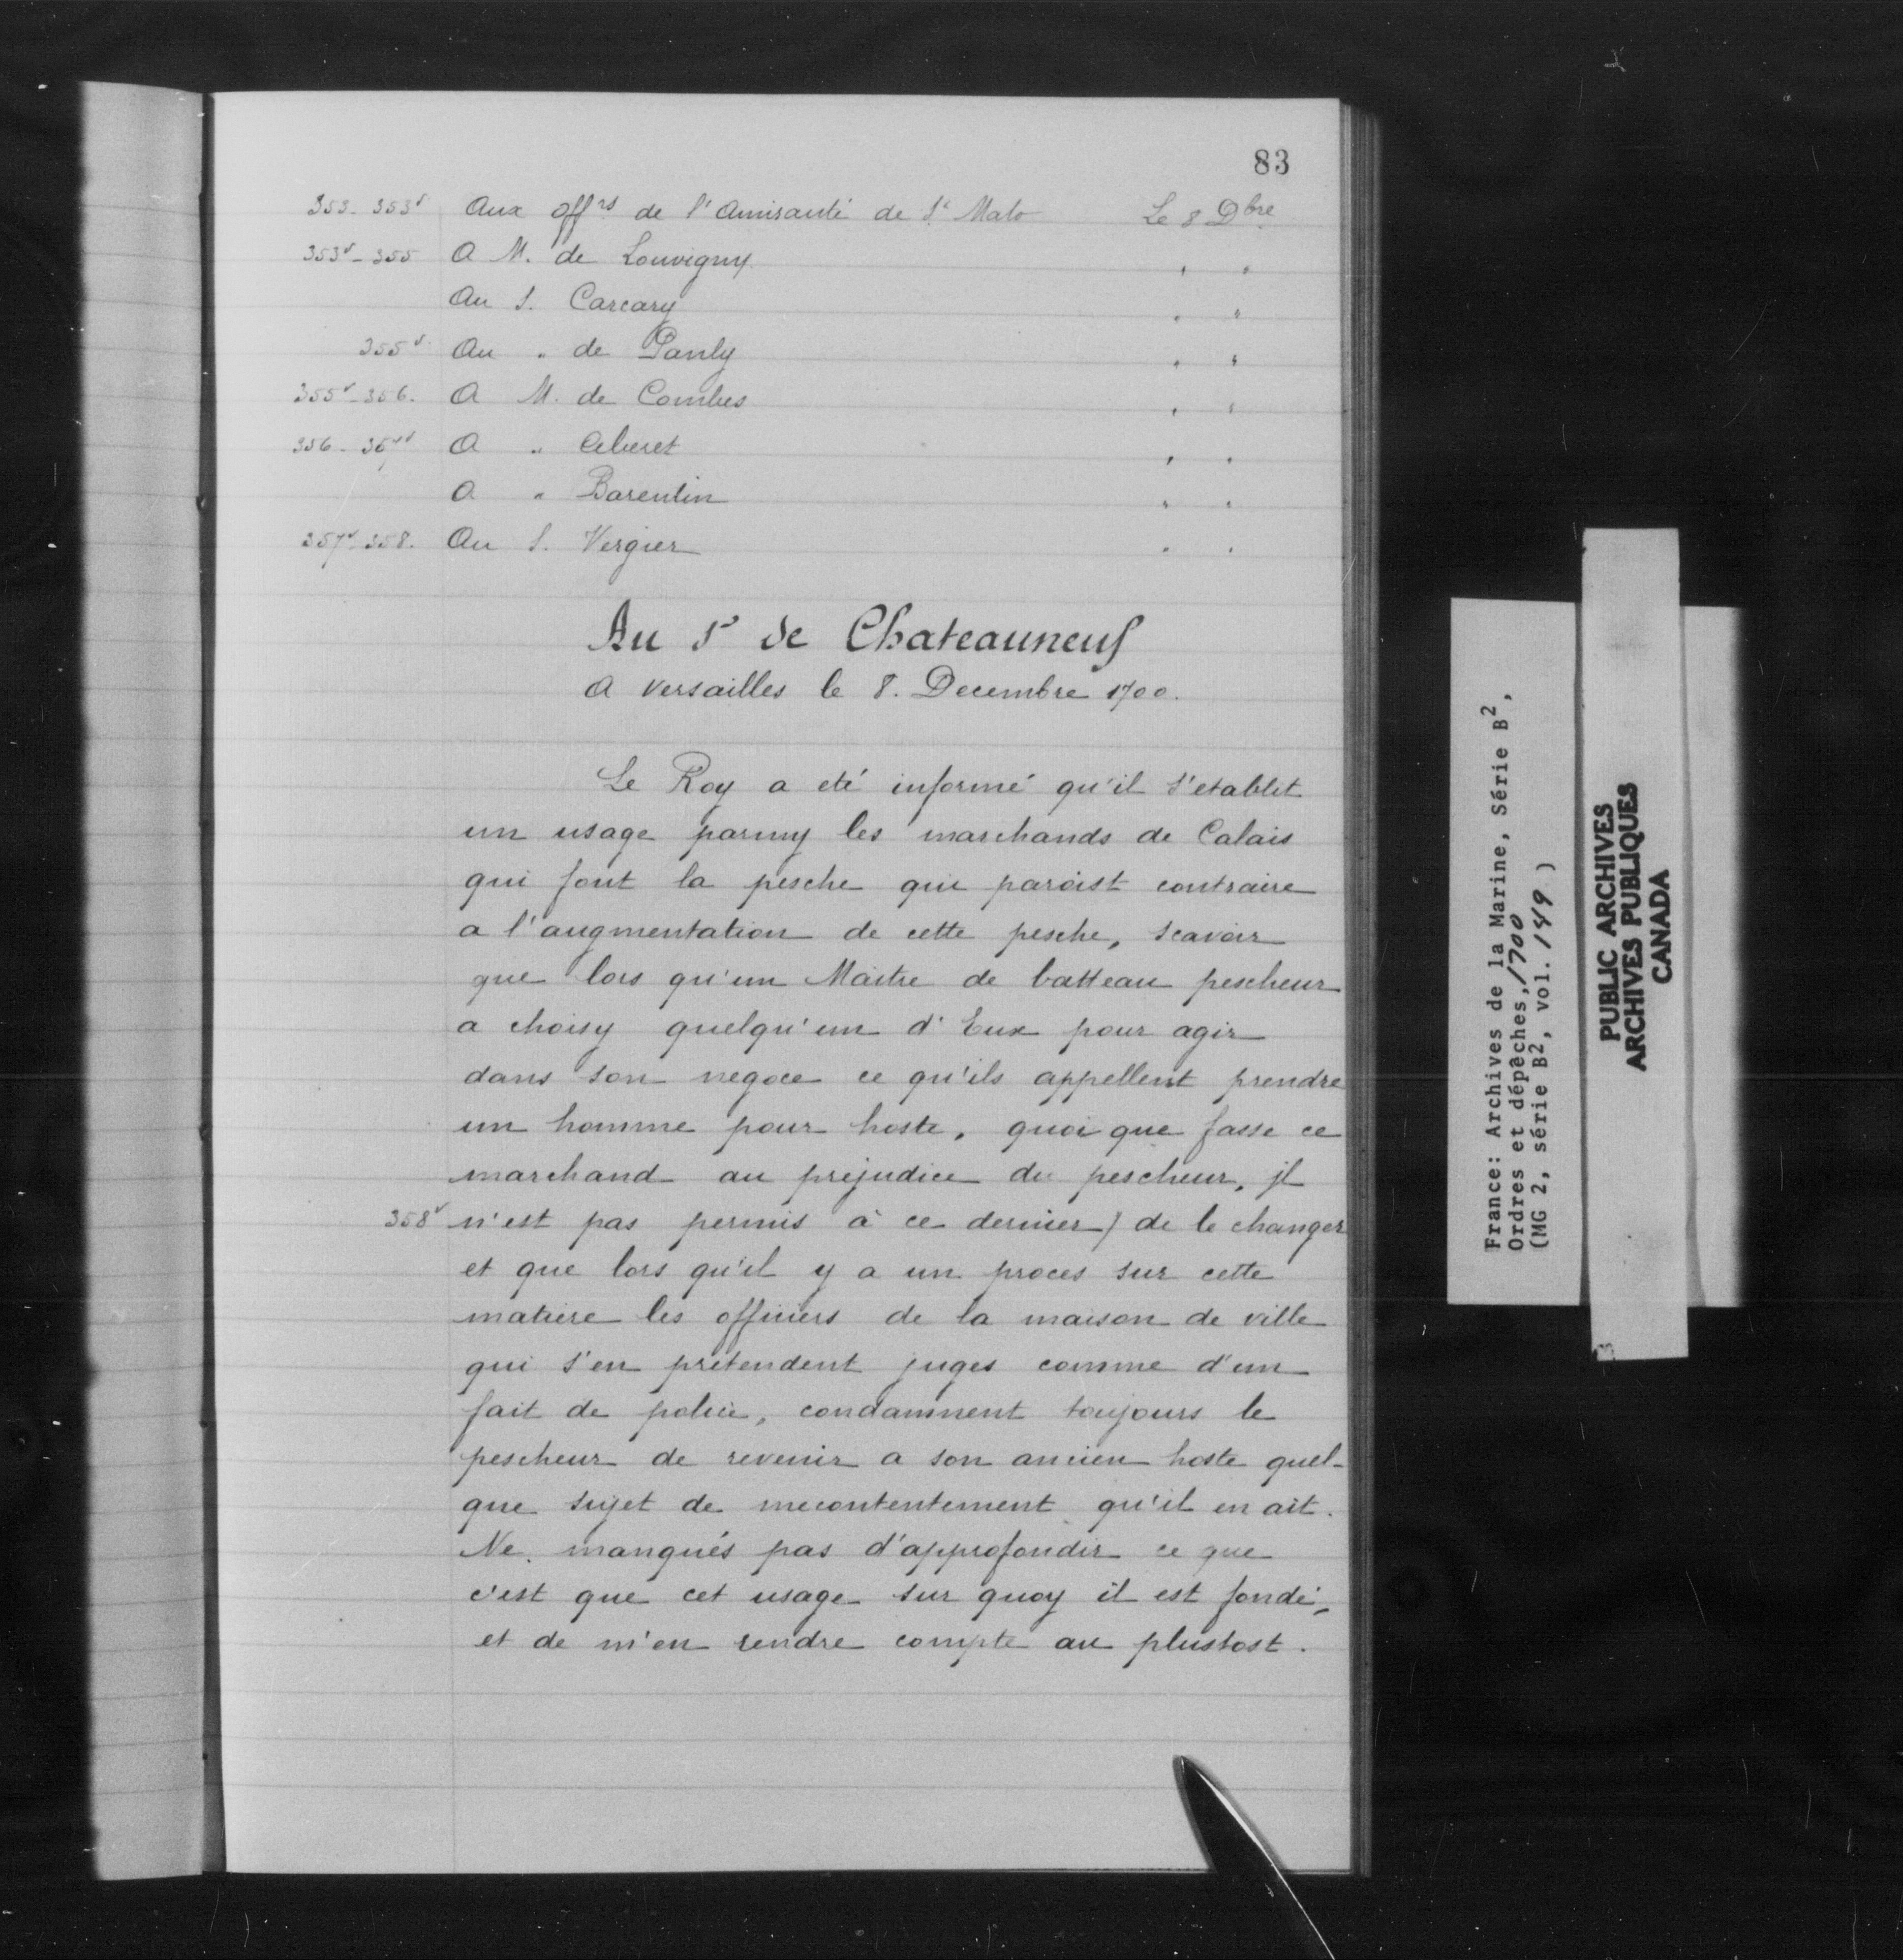 83
353-353v Aux offrs de l'Amirauté de St Malo Le 8 Dbre
353v-355 A M. de Louvigny " "
Au S. Carcary " "
355v Au " de Pauly " "
355v-356. A M. de Combes " "
356-357v A " Ceberet " "
A " Barentin " "
357v-358. Au S. Vergier " "
Au Sr de Chateauneuf
A Versailles le 8. Decembre 1700.
Le Roy a eté informé qu'il s'etablit
un usage parmy les marchands de Calais
qui font la pesche qui paroist contraire
a l'augmentation de cette pesche, scavoir
que lors qu'un Maitre de batteau pescheur
a choisy quelqu'un d'Eux pour agir
dans son negoce ce qu'ils appellent prendre
un homme pour hoste, quoi que fasse ce
marchand au prejudice du pescheur, jl
358v n'est pas permis à ce dernier / de le changer
et que lors qu'il y a un proces sur cette
matiere les officiers de la maison de ville
qui s'en prétendent juges comme d'un
fait de police, condamnent toujours le
pescheur de revenir a son ancien hoste quel-
que sujet de mecontentement qu'il en ait.
Ne manqués pas d'approfondir ce que
c'est que cet usage sur quoy il est fondé,
et de m'en rendre compte au plustost.
France: Archives de la Marine, Série B2,
Ordres et dépêches, 1700
(MG 2, série B2, vol. 149 )
PUBLIC ARCHIVES
ARCHIVES PUBLIQUES
CANADA